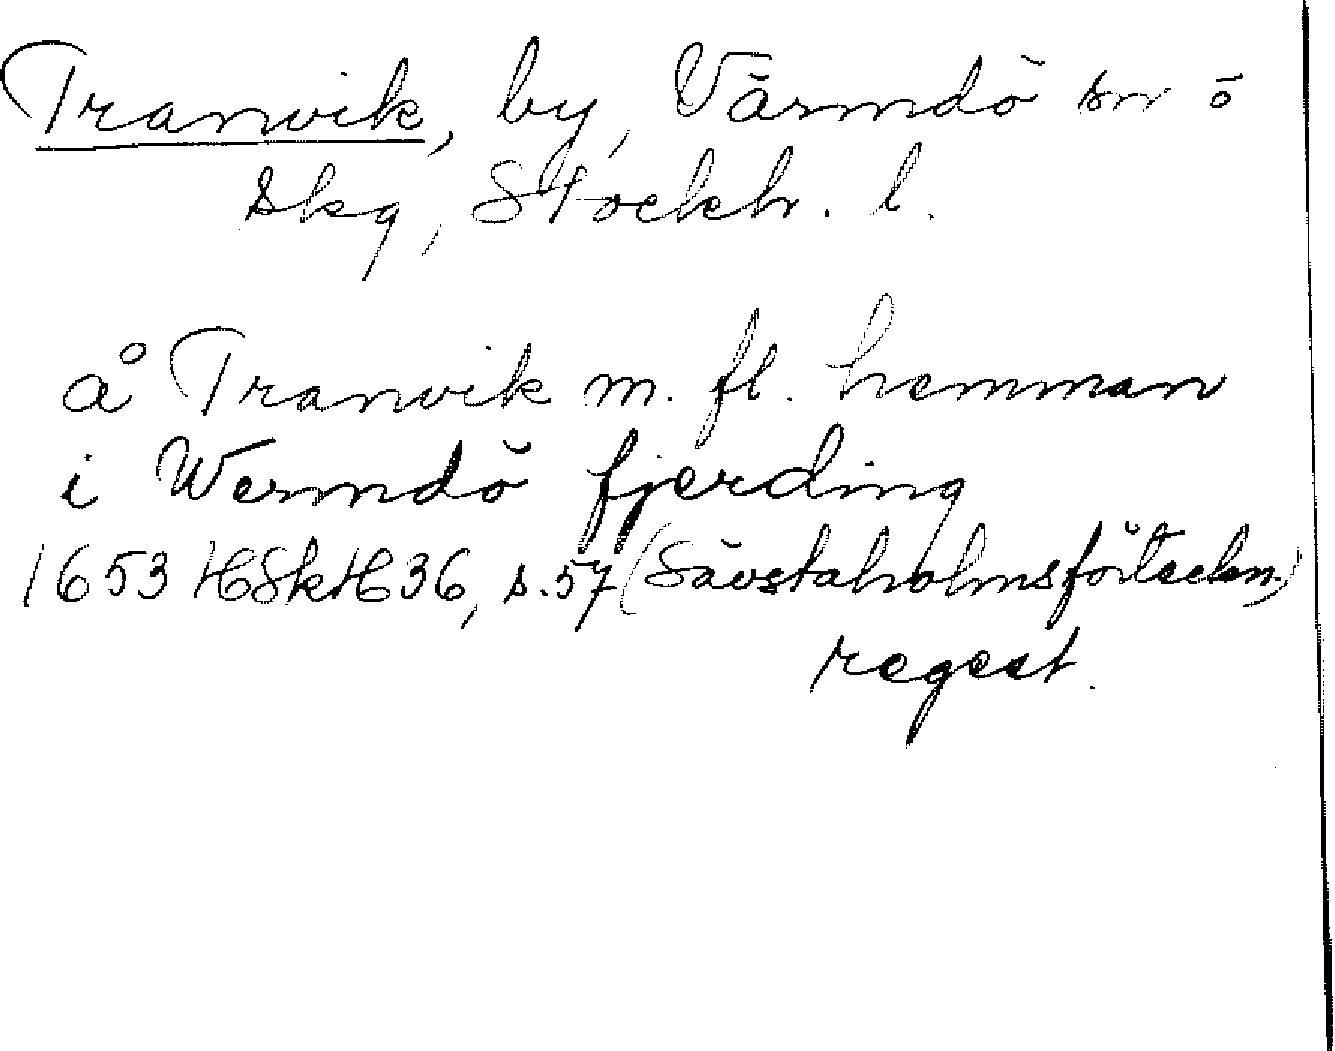 Tranvik, by, Värmdö sn ö
skg, Stockh. l.
å Tranvik m. fl. hemman
i Wermdö fjerding
1653 HSkH 36, s. 57 (Sävstaholmsförteckn.)
regest.